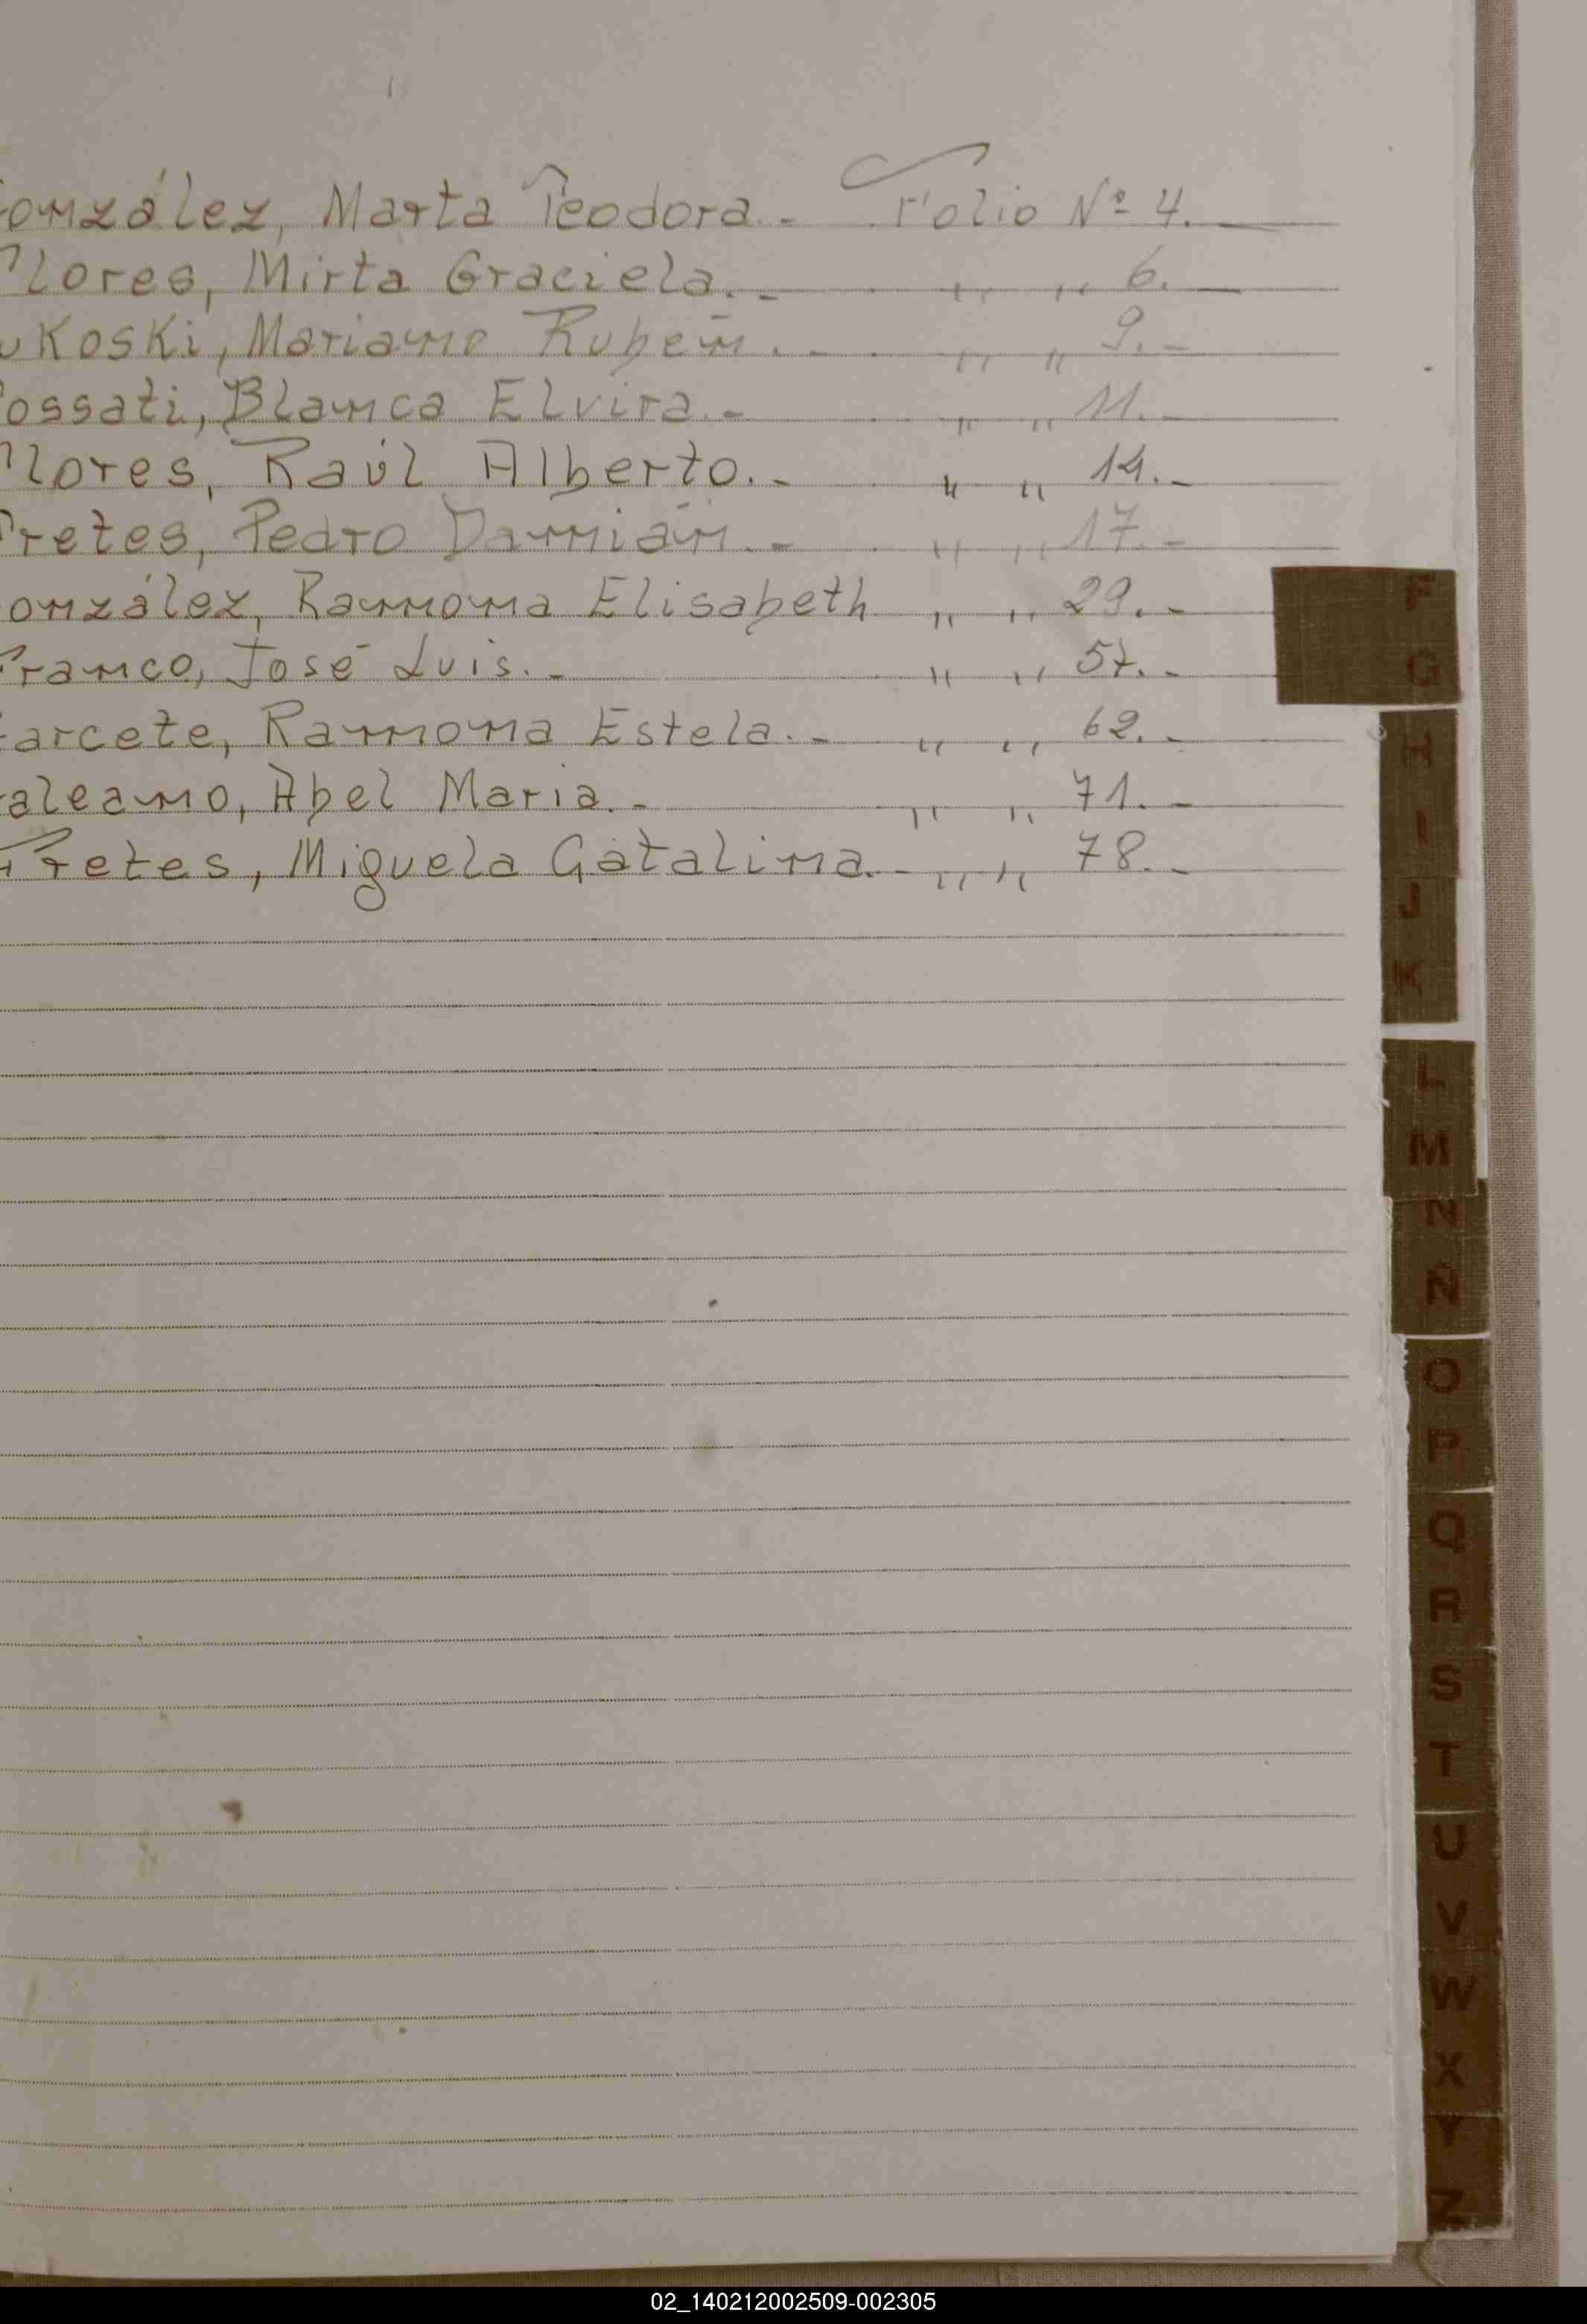 onzález, Marta Teodora.- Folio Nº 4.
Flores, Mirta Graciela.- " " 6.
ukoski, Mariano Rubén.- " " 9.-
ossati, Blanca Elvira.- " " 11.-
Flores, Raúl Alberto.- " " 14.-
Fretes, Pedro Damián.- " " 17.-
onzález, Ramona Elisabeth " " 29.-
Franco, José Luis.- " " 57.-
arcete, Ramona Estela.- " " 62.-
aleano, Abel Maria.- " " 71.-
Fretes, Miguela Catalina.- " " 78.-
F
G
H
I
J
K
L
M
N
Ñ
O
P
Q
R
S
T
U
V
W
X
Y
Z
02_140212002509-002305